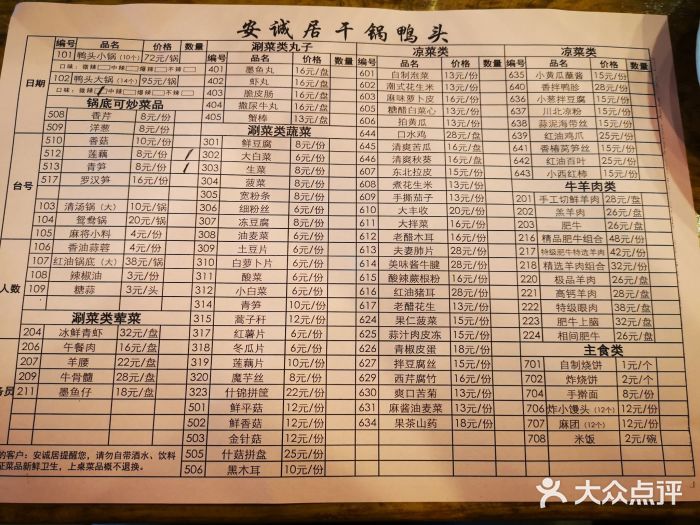 安诚居干锅鸭头
编号 品名 价格 数量
日期
101 鸭头小锅(10个) 72元/锅
口味：微辣□中辣□爆辣□不辣□
102 鸭头大锅(14个) 95元/锅
口味：微辣□中辣□爆辣□不辣□
锅底可炒菜品
508 香芹 8元/份
509 洋葱 8元/份
台号
510 香菇 10元/份
512 莲藕 8元/份
513 青笋 8元/份
517 罗汉笋 16元/份
103 清汤锅（大） 10元/锅
104 鸳鸯锅 20元/锅
105 麻将小料 4元/份
人数
106 香油蒜蓉 4元/份
107 红油锅底（大） 38元/锅
108 辣椒油 3元/份
109 糖蒜 3元/头
涮菜类荤菜
204 冰鲜青虾 32元/盘
务员
206 午餐肉 16元/盘
207 羊腰 22元/盘
209 牛骨髓 28元/盘
211 墨鱼仔 18元/盘
的客户：安诚居提醒您，请勿自带酒水、饮料
证菜品新鲜卫生，上桌菜品概不退换。
涮菜类丸子
编号 品名 价格 数量
401 墨鱼丸 16元/盘
402 虾丸 16元/盘
403 脆皮肠 16元/盘
404 撒尿牛丸 16元/盘
405 蟹棒 13元/盘
涮菜类蔬菜
301 鲜豆腐 8元/份
302 大白菜 6元/份
303 生菜 8元/份
304 菠菜
305 宽粉条
306 细粉丝 6元/份
307 冻豆腐 8元/份
308 油麦菜 8元/份
309 土豆片 6元/份
310 白萝卜片 6元/份
311 酸菜 8元/份
312 小白菜 6元/份
314 青笋
315 蒿子秆 12元/份
317 红薯片 6元/份
318 冬瓜片 6元/份
319 莲藕片 10元/份
320 魔芋丝 8元/份
323 什锦拼筐 22元/份
501 鲜平菇 12元/份
502 鲜香菇 12元/份
503 金针菇 12元/份
505 什菇拼盘 25元/份
506 黑木耳 10元/份
凉菜类
编号 品名 价格 数量
601 自制泡菜 13元/份
602 潮式花生米 13元/份
603 麻味萝卜皮 13元/份
605 糖醋白菜心 13元/份
606 拍黄瓜 13元/份
644 口水鸡 28元/盘
645 清爽苦瓜 16元/份
646 清爽秋葵 16元/份
607 东北拉皮 15元/份
608 煮花生米 13元/份
609 手撕茄子 13元/份
610 大丰收 20元/份
611 大拌菜 16元/份
612 老醋木耳 16元/份
613 夫妻肺片 28元/份
614 美味酱牛腱 28元/份
615 酸辣蕨根粉 16元/份
616 红油猪耳 28元/份
617 老醋花生 13元/份
624 果仁菠菜 15元/份
625 蒜汁肉皮冻 15元/份
626 青椒皮蛋 18元/份
627 拌豆腐丝 15元/份
629 西芹腐竹 16元/份
630 爽口苦菊 13元/份
631 麻酱油麦菜 13元/份
634 果茶山药 18元/份
凉菜类
编号 品名 价格 数量
635 小黄瓜蘸酱 15元/份
640 香拌鸭胗 28元/份
636 小葱拌豆腐 15元/份
637 川北凉粉 15元/份
638 蒜泥海带丝 15元/份
639 红油鸡爪 25元/份
641 香椿莴笋丝 15元/份
642 红油百叶 25元/份
643 小西红柿 15元/份
牛羊肉类
201 手工切鲜羊肉 28元/盘
202 羔羊肉 26元/盘
203 肥牛 26元/盘
216 精品肥牛组合 48元/盘
217 特级肥牛特选羊肉 38元/盘
218 精选羊肉组合 32元/盘
220 极品羊肉 26元/盘
221 高钙羊肉 28元/盘
222 特级眼肉 38元/盘
223 肥牛上脑 32元/盘
224 相间肥牛 26元/盘
主食类
701 自制烧饼 1元/个
702 炸烧饼 2元/个
704 手擀面 8元/份
706 炸小馒头(12个) 12元/份
707 麻团(12个) 12元/份
708 米饭 2元/碗
大众点评